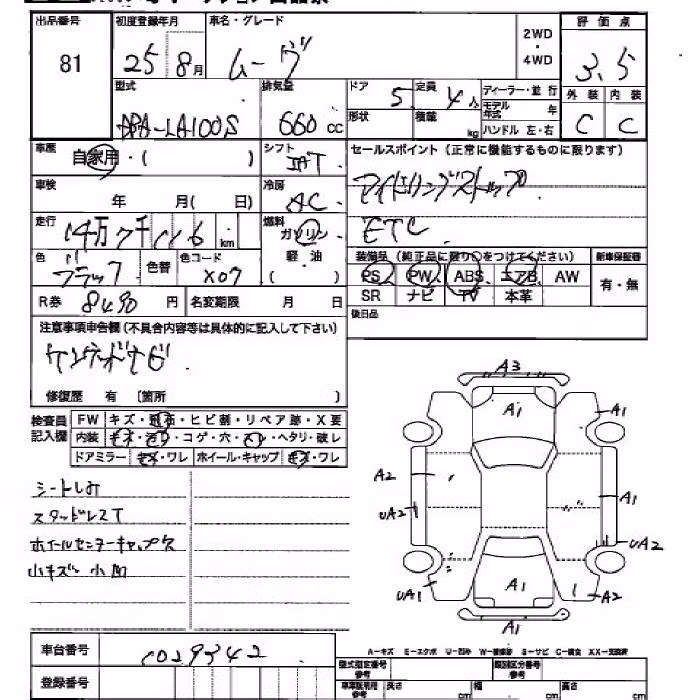 出品番号 初度登録年月 車名・グレード 2WD・4WD 評価点
81 25 8月 ムーヴ 3.5
型式 排気量 ドア 5 定員 4人 ディーラー・並行 外装 内装
DBA-LA100S 660cc 形状 積載 kg モデル年式 年 ハンドル 左・右 C C
車歴 自家用・( ) シフト セールスポイント(正常に機能するものに限ります)
車検 年 月( 日) 冷房 AC アイドリングストップ
走行 14万7千116km 燃料 ガソリン 軽油 ( ) ETC
色 ブラック 色替 色コード X07 装備品(純正品に限り○をつけてください) 新車保証書
PS PW ABS エアB AW 有・無
R券 8490円 名変期限 月 日 SR ナビ TV 本革
後日品
注意事項申告欄(不具合内容等は具体的に記入して下さい)
修復歴 有 〔箇所 〕
検査員記入欄 FW キズ・飛石・ヒビ割・リペア跡・X要
内装 キズ・汚れ・コゲ・穴・スレ・ヘタリ・破レ
ドアミラー キズ・ワレ ホイール・キャップ キズ・ワレ
シートしみ
スタッドレスT
ホイールセンターキャップ欠
小キズ小凹
A3
A1
A1
A2
UA2
A1
UA2
UA1
A1
A2
A1
A-キズ E-エクボ U-凹み W-補修跡 S-サビ C-腐食 XX-交換済
車台番号 1029342
型式指定番号 参考 類別区分番号 参考
登録番号 車車証明用 参考 長さ cm 幅 cm 高さ cm